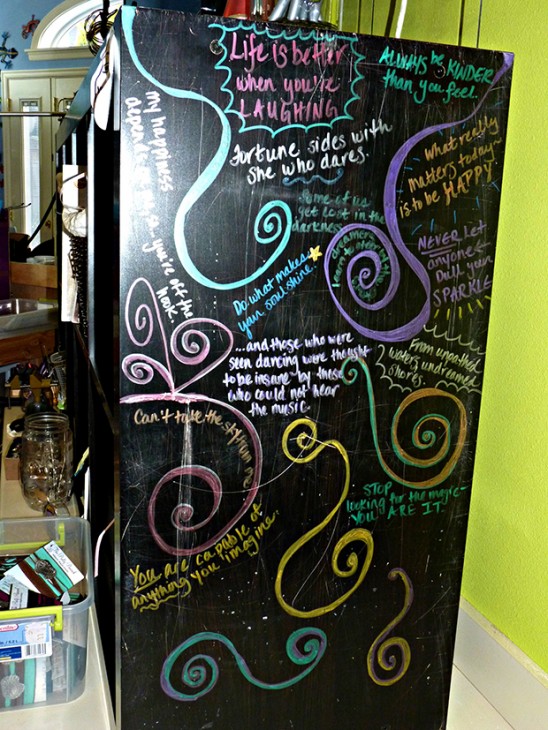 Life is better
when you're
LAUGHING
ALWAYS be KINDER
than you feel.
Fortune sides with
she who dares.
what really
matters today~
is to be HAPPY
my happiness
depends on me, so you're off the
hook.
Some of us
get lost in the
darkness
dreamers
learn to
NEVER Let
anyone
Dull your
SPARKLE
Do what makes
your soul shine.
...and those who were
seen dancing were thought
to be insane by those
who could not hear
the music.
From unpathed
waters, undreamed
shores.
Can't take the
me
STOP
looking for the magic~
YOU ARE IT.
You are capable of
anything you imagine.